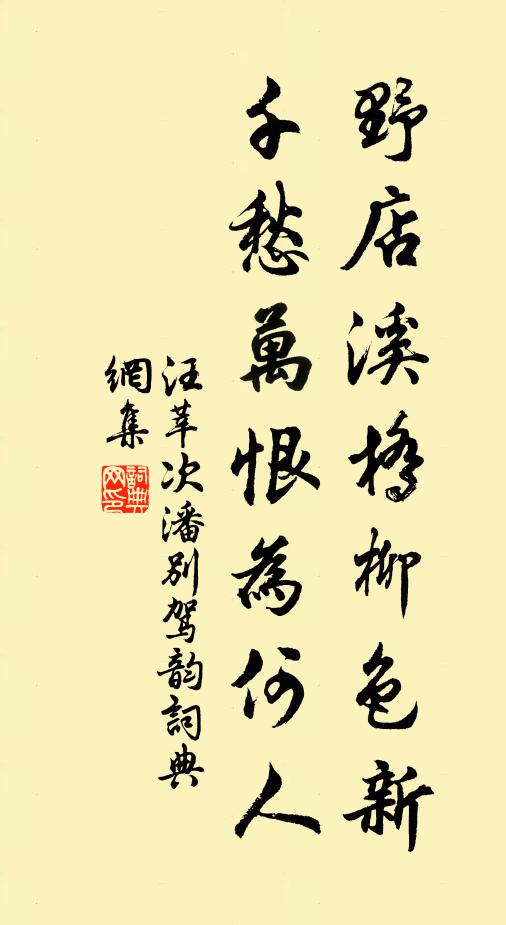 野店溪橋柳色新
千愁萬恨為何人
汪莘次潘别駕韵詞典
網集
詞典
网印